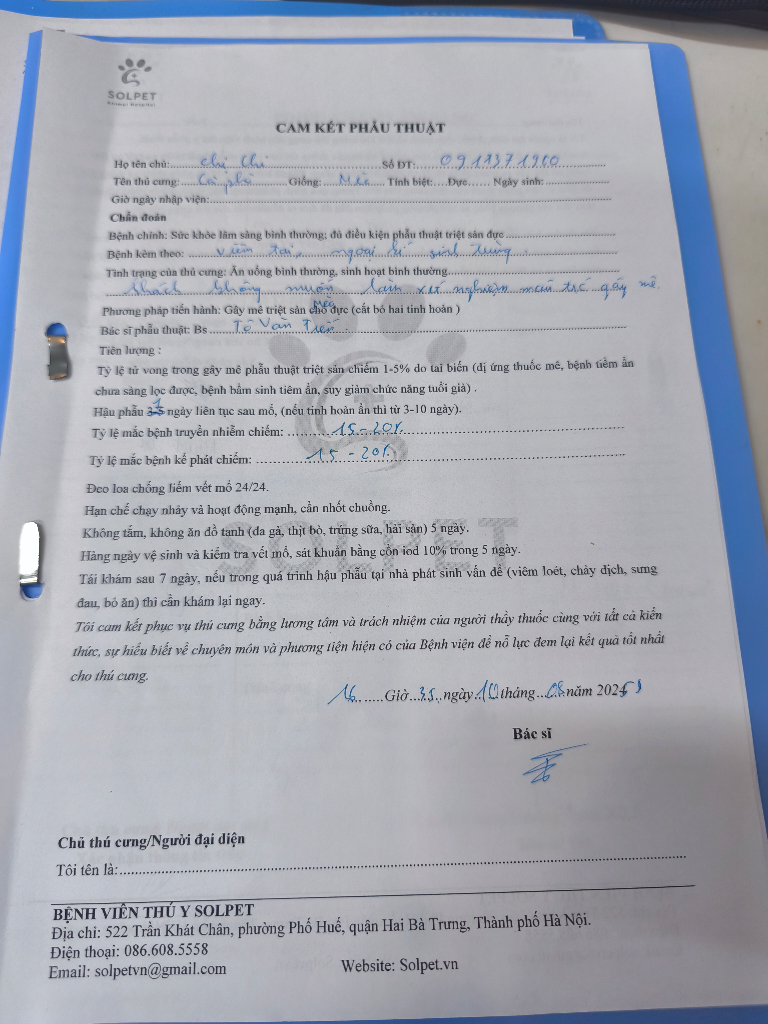 SOLPET
Animal Hospital
CAM KẾT PHẪU THUẬT
Họ tên chủ: Chị Chi Số ĐT: 0917371910
Tên thú cưng: Cà phê Giống: Mèo Tính biệt: Đực Ngày sinh:
Giờ ngày nhập viện:
Chẩn đoán
Bệnh chính: Sức khỏe lâm sàng bình thường; đủ điều kiện phẫu thuật triệt sản đực
Bệnh kèm theo: viêm tai, ngoại kí sinh trùng
Tình trạng của thú cưng: Ăn uống bình thường, sinh hoạt bình thường
khách không muốn làm xét nghiệm máu trc gây mê
Phương pháp tiến hành: Gây mê triệt sản chó mèo đực (cắt bỏ hai tinh hoàn )
Bác sĩ phẫu thuật: Bs Tô Văn Tiến
Tiên lượng :
Tỷ lệ tử vong trong gây mê phẫu thuật triệt sản chiếm 1-5% do tai biến (dị ứng thuốc mê, bệnh tiềm ẩn
chưa sàng lọc được, bệnh bẩm sinh tiềm ẩn, suy giảm chức năng tuổi già) .
Hậu phẫu ngày liên tục sau mổ, (nếu tinh hoàn ẩn thì từ 3-10 ngày).
Tỷ lệ mắc bệnh truyền nhiễm chiếm: 15-20%
Tỷ lệ mắc bệnh kế phát chiếm: 15-20%
Đeo loa chống liếm vết mổ 24/24.
Hạn chế chạy nhảy và hoạt động mạnh, cần nhốt chuồng.
Không tắm, không ăn đồ tanh (da gà, thịt bò, trứng sữa, hải sản) 5 ngày.
Hàng ngày vệ sinh và kiểm tra vết mổ, sát khuẩn bằng cồn iod 10% trong 5 ngày.
Tái khám sau 7 ngày, nếu trong quá trình hậu phẫu tại nhà phát sinh vấn đề (viêm loét, chảy dịch, sưng
đau, bỏ ăn) thì cần khám lại ngay.
Tôi cam kết phục vụ thú cưng bằng lương tâm và trách nhiệm của người thầy thuốc cùng với tất cả kiến
thức, sự hiểu biết về chuyên môn và phương tiện hiện có của Bệnh viện để nỗ lực đem lại kết quả tốt nhất
cho thú cưng.
16 Giờ 35 ngày 10 tháng 08 năm 2025
Bác sĩ
SOLPET
Chủ thú cưng/Người đại diện
Tôi tên là:
BỆNH VIÊN THÚ Y SOLPET
Địa chỉ: 522 Trần Khát Chân, phường Phố Huế, quận Hai Bà Trưng, Thành phố Hà Nội.
Điện thoại: 086.608.5558
Email: solpetvn@gmail.com Website: Solpet.vn